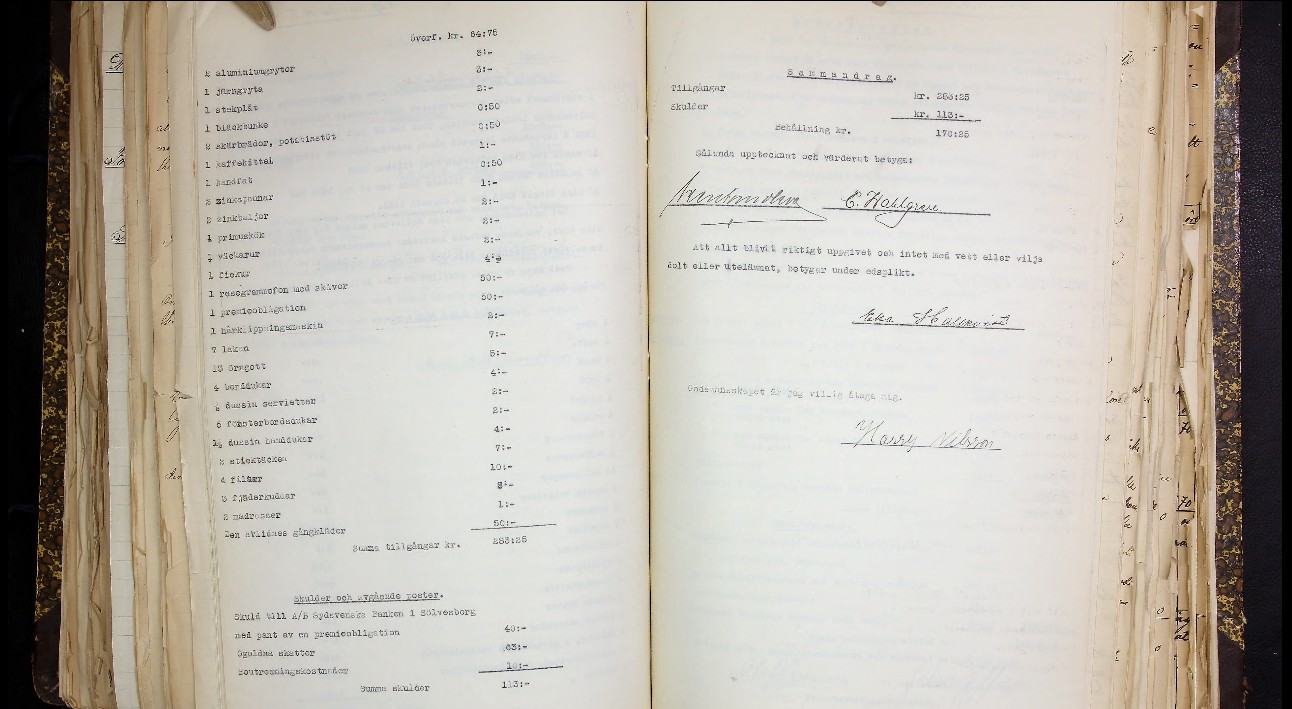 Överf. kr. 84:75
2 aluminiumgrytor 3:-
1 järngryta 3:-
1 stekplåt 2:-
1 bläckbunke 0:50
2 skärbräder, potatisstöt 0:50
1 kaffekittel 1:-
1 handfat 0:50
2 zinkspannar 1:-
2 zinkbaljor 2:-
1 primuskök 2:-
1 väckarur 2:-
1 fickur
1 resegrammofon med skivor 50:-
1 premieobligation 50:-
1 hårklippningsmaskin 2:-
7 lakan 7:-
13 örngott 5:-
4 borddukar 4:-
½ dussin servietter 2:-
6 fönsterbordsdukar 2:-
1½ dussin handdukar 4:-
2 sticktäcken 7:-
4 filtar 10:-
3 fjäderkuddar
2 madrasser 1:-
Den avlidnes gångkläder 50:-
Summa tillgångar kr. 283:25
Skulder och avgående poster.
Skuld till A/B Sydsvenska Banken i Sölvesborg
med pant av en premieobligation 40:-
Oguldna skatter 63:-
Boutredningskostnader 10:-
Summa skulder 113:-
Sammandrag.
Tillgångar kr. 283:25
Skulder kr. 113:-
Behållning kr. 170:25
Sålunda upptecknat och värderat betyga:
Att allt blivit riktigt uppgivet och intet med vett eller vilja
dolt eller utelämnat, betygar under edsplikt.
Godemanskapet är jag villig åtaga mig.
Harry Nilsson